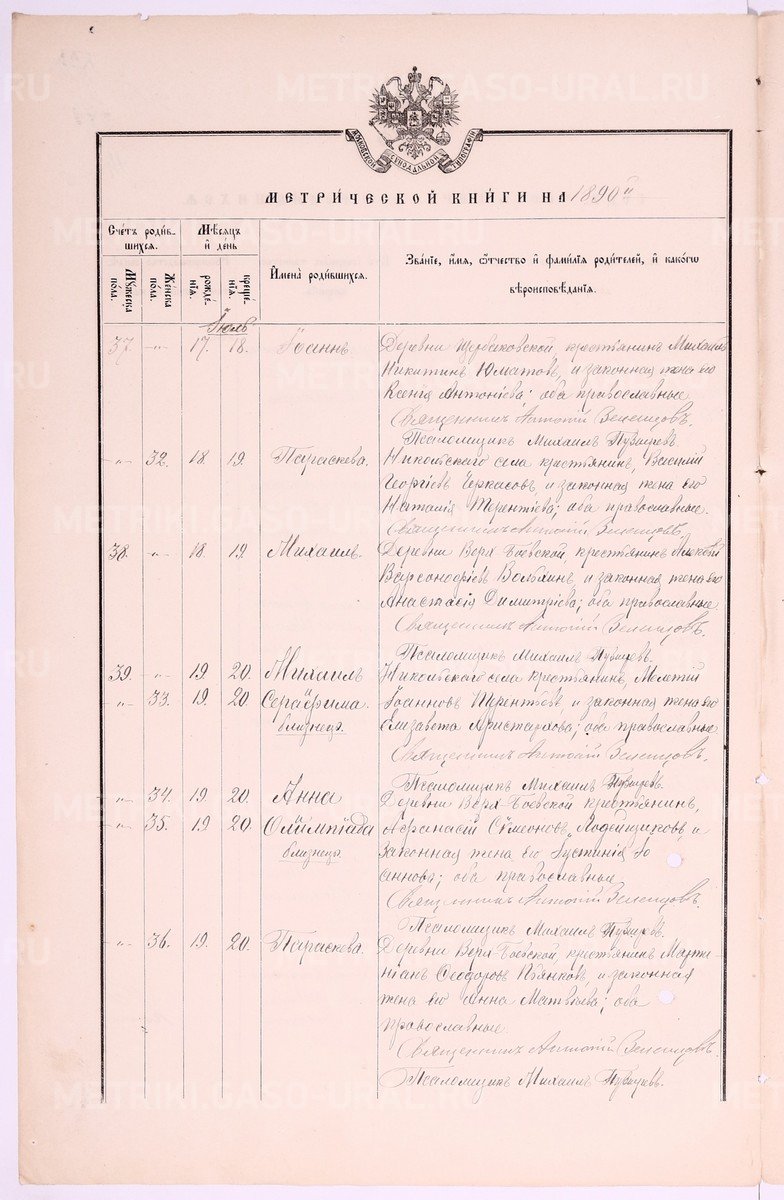 МЕТРИЧЕСКОЙ КНИГИ НА 1890 й
Счетъ родив-
шихся.
Мѣсяцъ
и день
Имена родившихся.
Званіе, имя, отчество и фамилія родителей, и какого
вѣроисповѣданія.
Мужеска
пола.
Женска
пола.
рожде-
нія.
креще-
нія.
Іюль
37. -„- 17. 18. Іоаннъ Деревни Щербаковской, крестьянинъ Михаилъ
Никитинъ Юматовъ, и законная жена его
Ксенія Антоніева; оба православные.
Священникъ Антоній Зеленцовъ.
Псаломщикъ Михаилъ
-„- 32. 18. 19. Параскева. Никольскаго села крестьянинъ, Василій
Георгіевъ Черкасовъ, и законная жена его
Наталія Терентіева; оба православные.
Священникъ Антоній Зеленцовъ.
38. -„- 18. 19. Михаилъ. Деревни Верх-Боевской, крестьянинъ Алексій
Варсонофіевъ и законная жена его
Анастасія Димитріева; оба православные
Священникъ Антоній Зеленцовъ.
Псаломщикъ Михаилъ
39. -„- 19. 20. Михаилъ Никольскаго села крестьянинъ, Мелетій
-„- 33. 19. 20. Серафима. Іоанновъ Терентьевъ, и законная жена его
близнецы. Елизавета Аристархова; оба православные
Священникъ Антоній Зеленцовъ.
Псаломщикъ Михаилъ
-„- 34. 19. 20. Анна Деревни Верх-Боевской крестьянинъ,
-„- 35. 19. 20. Олимпіада Афанасій Сѵмеоновъ Лодейщиковъ, и
близнецы. законная жена его Іустинія Іо
аннова; оба православные
Священникъ Антоній Зеленцовъ.
Псаломщикъ Михаилъ
-„- 36. 19. 20. Параскева. Деревни Верх-Боевской, крестьянинъ Марти-
ніанъ Феодоровъ Пьянковъ, и законная
жена его Анна Матвіева; оба
православные.
Священникъ Антоній Зеленцовъ.
Псаломщикъ Михаилъ
METRIKI.GASO-URAL.RU